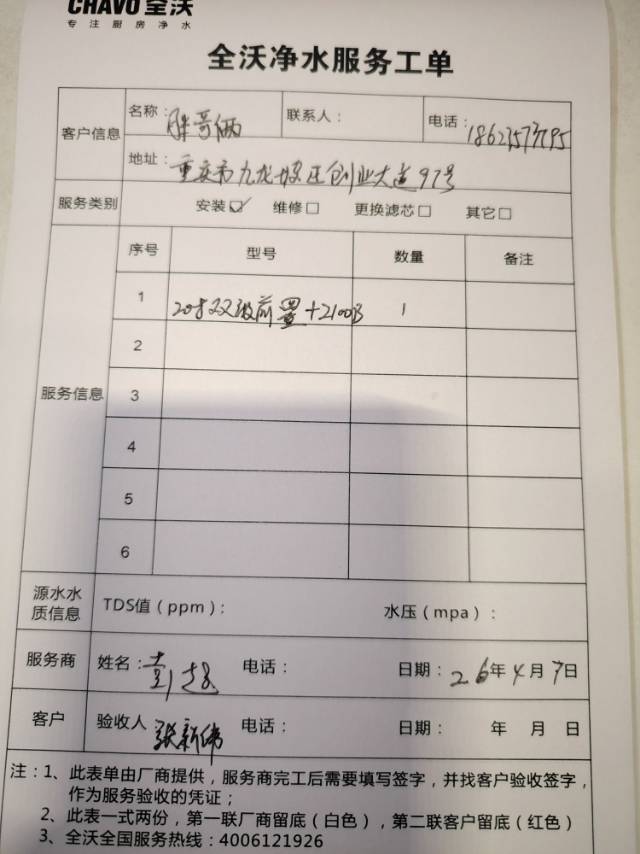 CHAVO 全沃
专注厨房净水
全沃净水服务工单
客户信息
名称：胖哥俩 联系人： 电话：
地址：重庆市九龙坡区创业大道97号
服务类别 安装☑ 维修□ 更换滤芯□ 其它□
服务信息
序号 型号 数量 备注
1 20寸双级前置+2100B 1
2
3
4
5
6
源水水质信息 TDS值（ppm）： 水压（mpa）：
服务商 姓名：彭超 电话： 日期：26年4月7日
客户 验收人 张新伟 电话： 日期： 年 月 日
注：1、此表单由厂商提供，服务商完工后需要填写签字，并找客户验收签字，
作为服务验收的凭证；
2、此表一式两份，第一联厂商留底（白色），第二联客户留底（红色）
3、全沃全国服务热线：4006121926